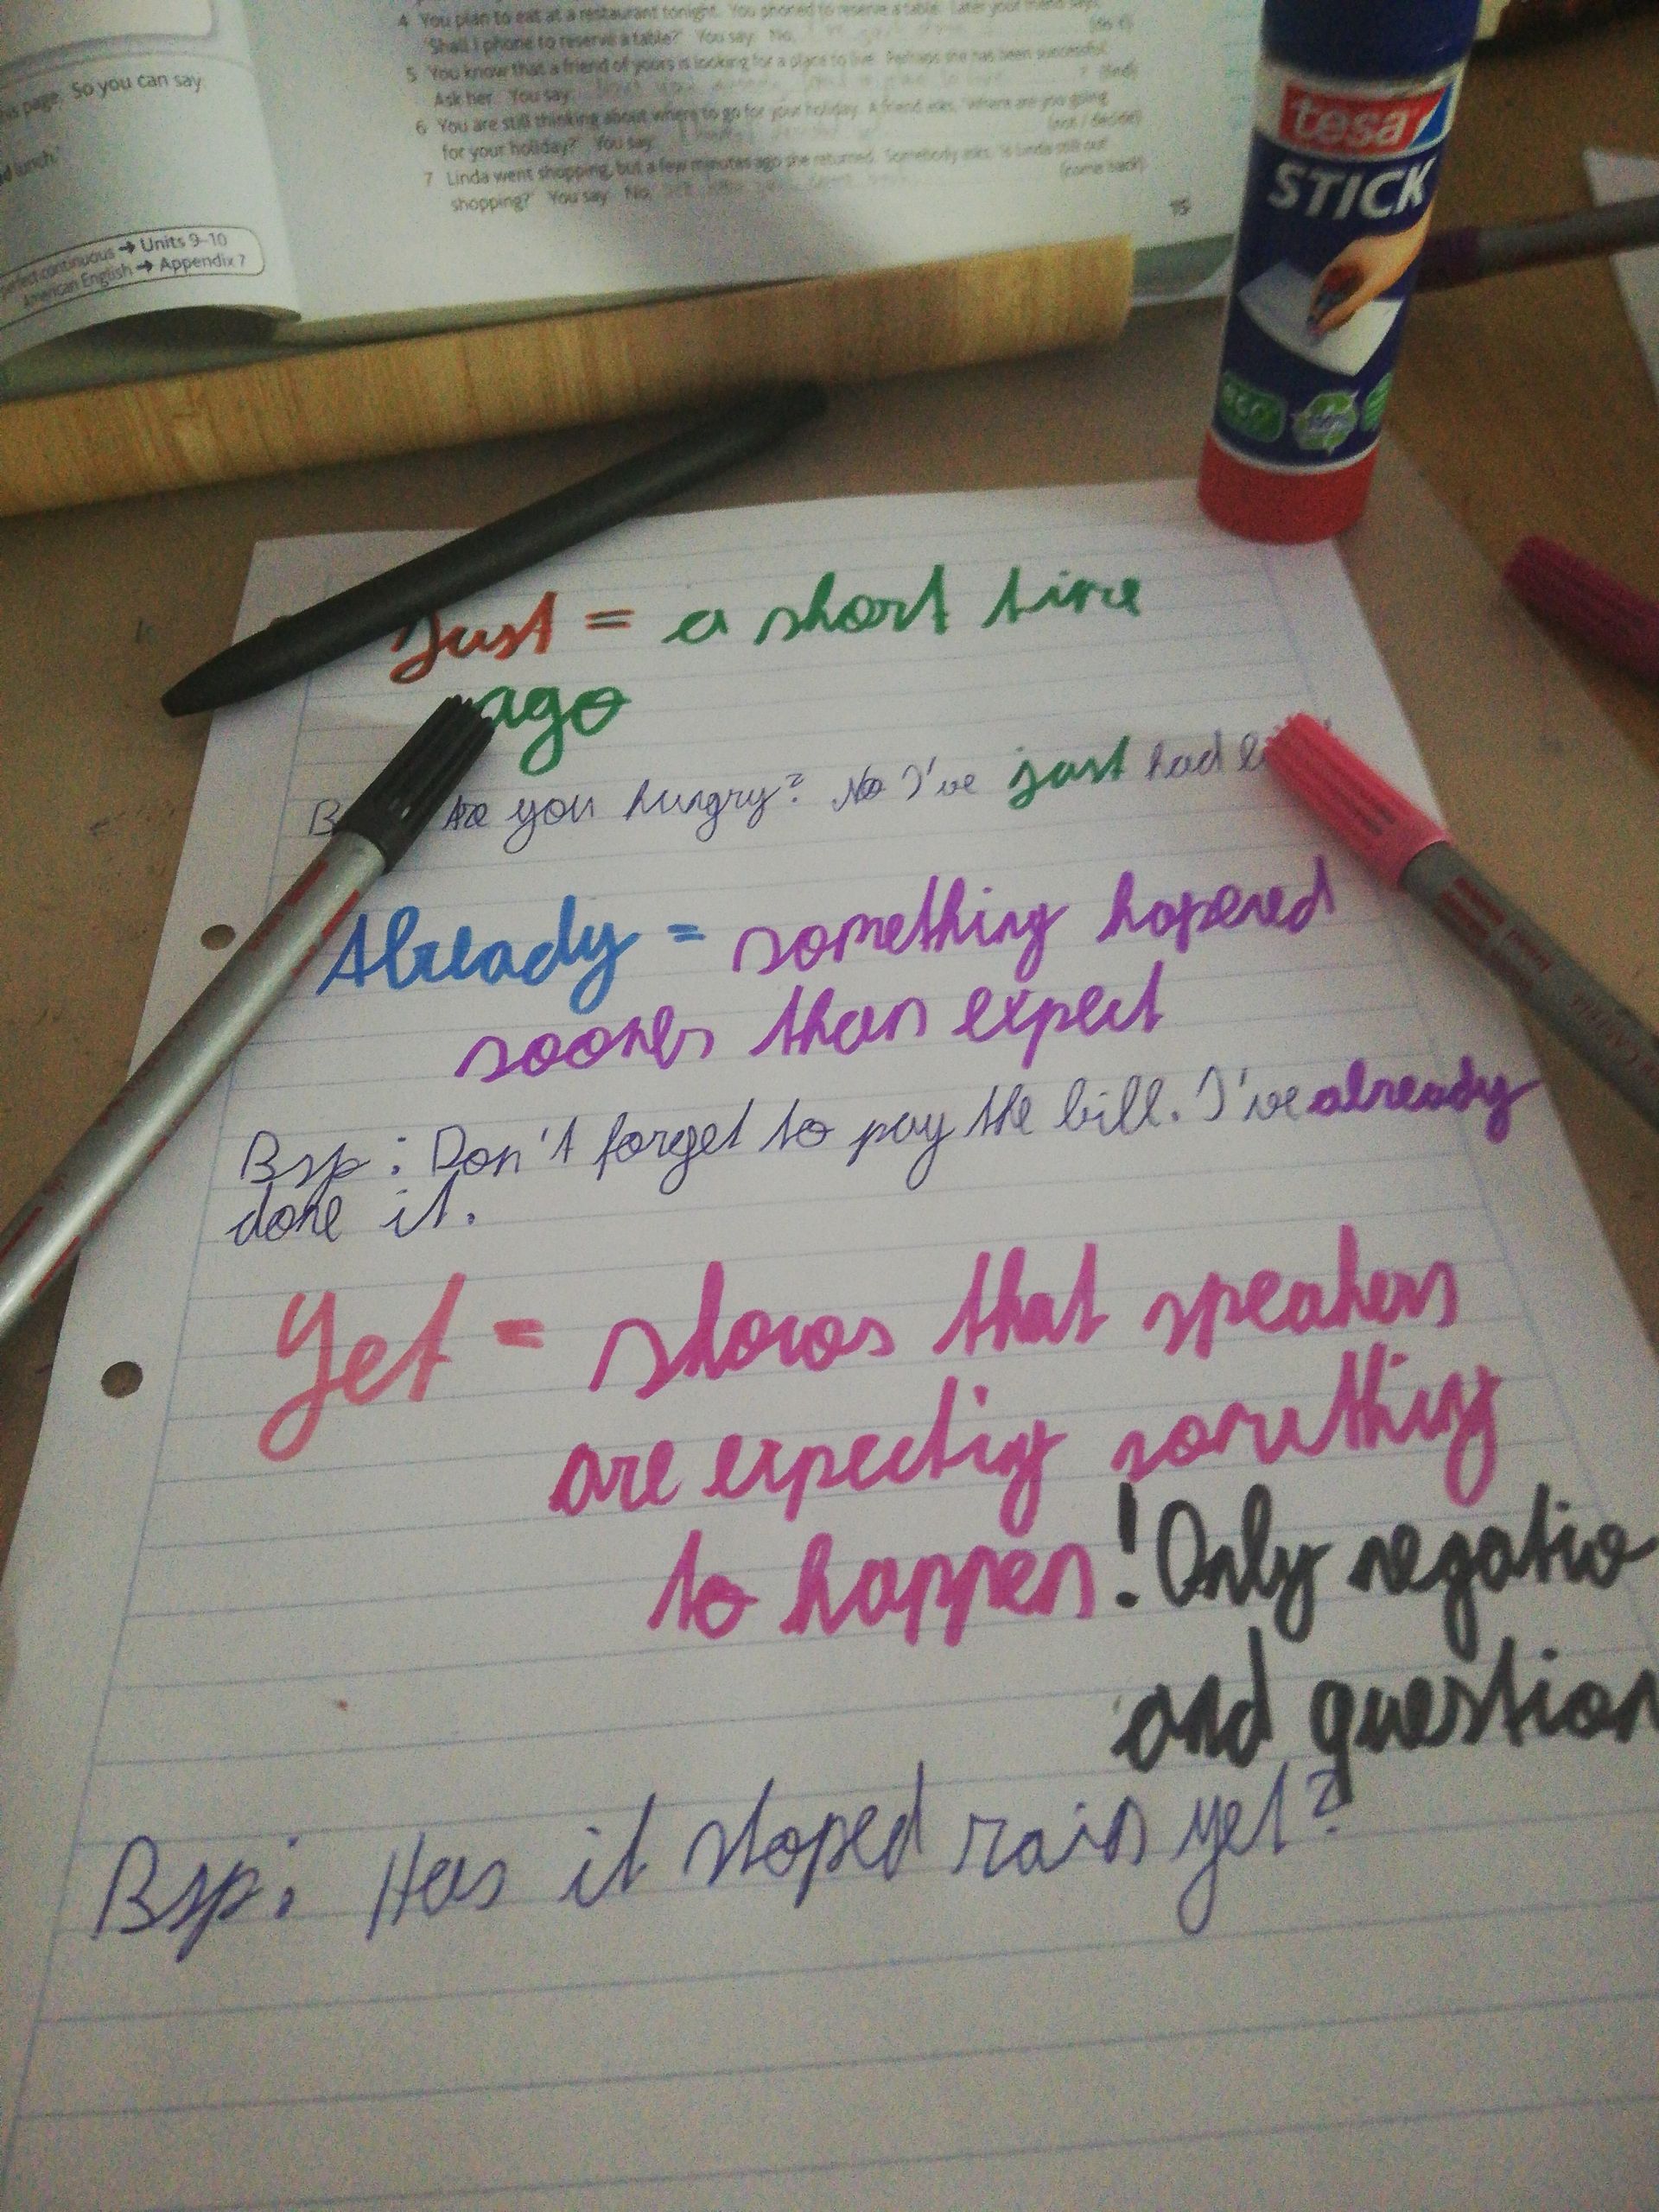 4 You plan to eat at a restaurant tonight. You phoned to reserve a table. Later your friend says,
'Shall I phone to reserve a table?' You say: No,
5 You know that a friend of yours is looking for a place to live. Perhaps she has been successful.
Ask her. You say: ? (find)
6 You are still thinking about where to go for your holiday. A friend asks, 'Where are you going
for your holiday?' You say: (not / decide)
7 Linda went shopping, but a few minutes ago she returned. Somebody asks, 'Is Linda still out
shopping?' You say: No, (come back)
15
his page. So you can say
lunch.'
perfect continuous → Units 9–10
American English → Appendix 7
tesa
STICK
Just = a short time
ago
Are you hungry? No I've just had
Already = something hopened
sooner than expect
Bsp: Don't forget to pay the bill. I've already
done it.
Yet = shows that speakers
are expecting something
to happen! Only negativ
and question
Bsp: Has it stoped rain yet?